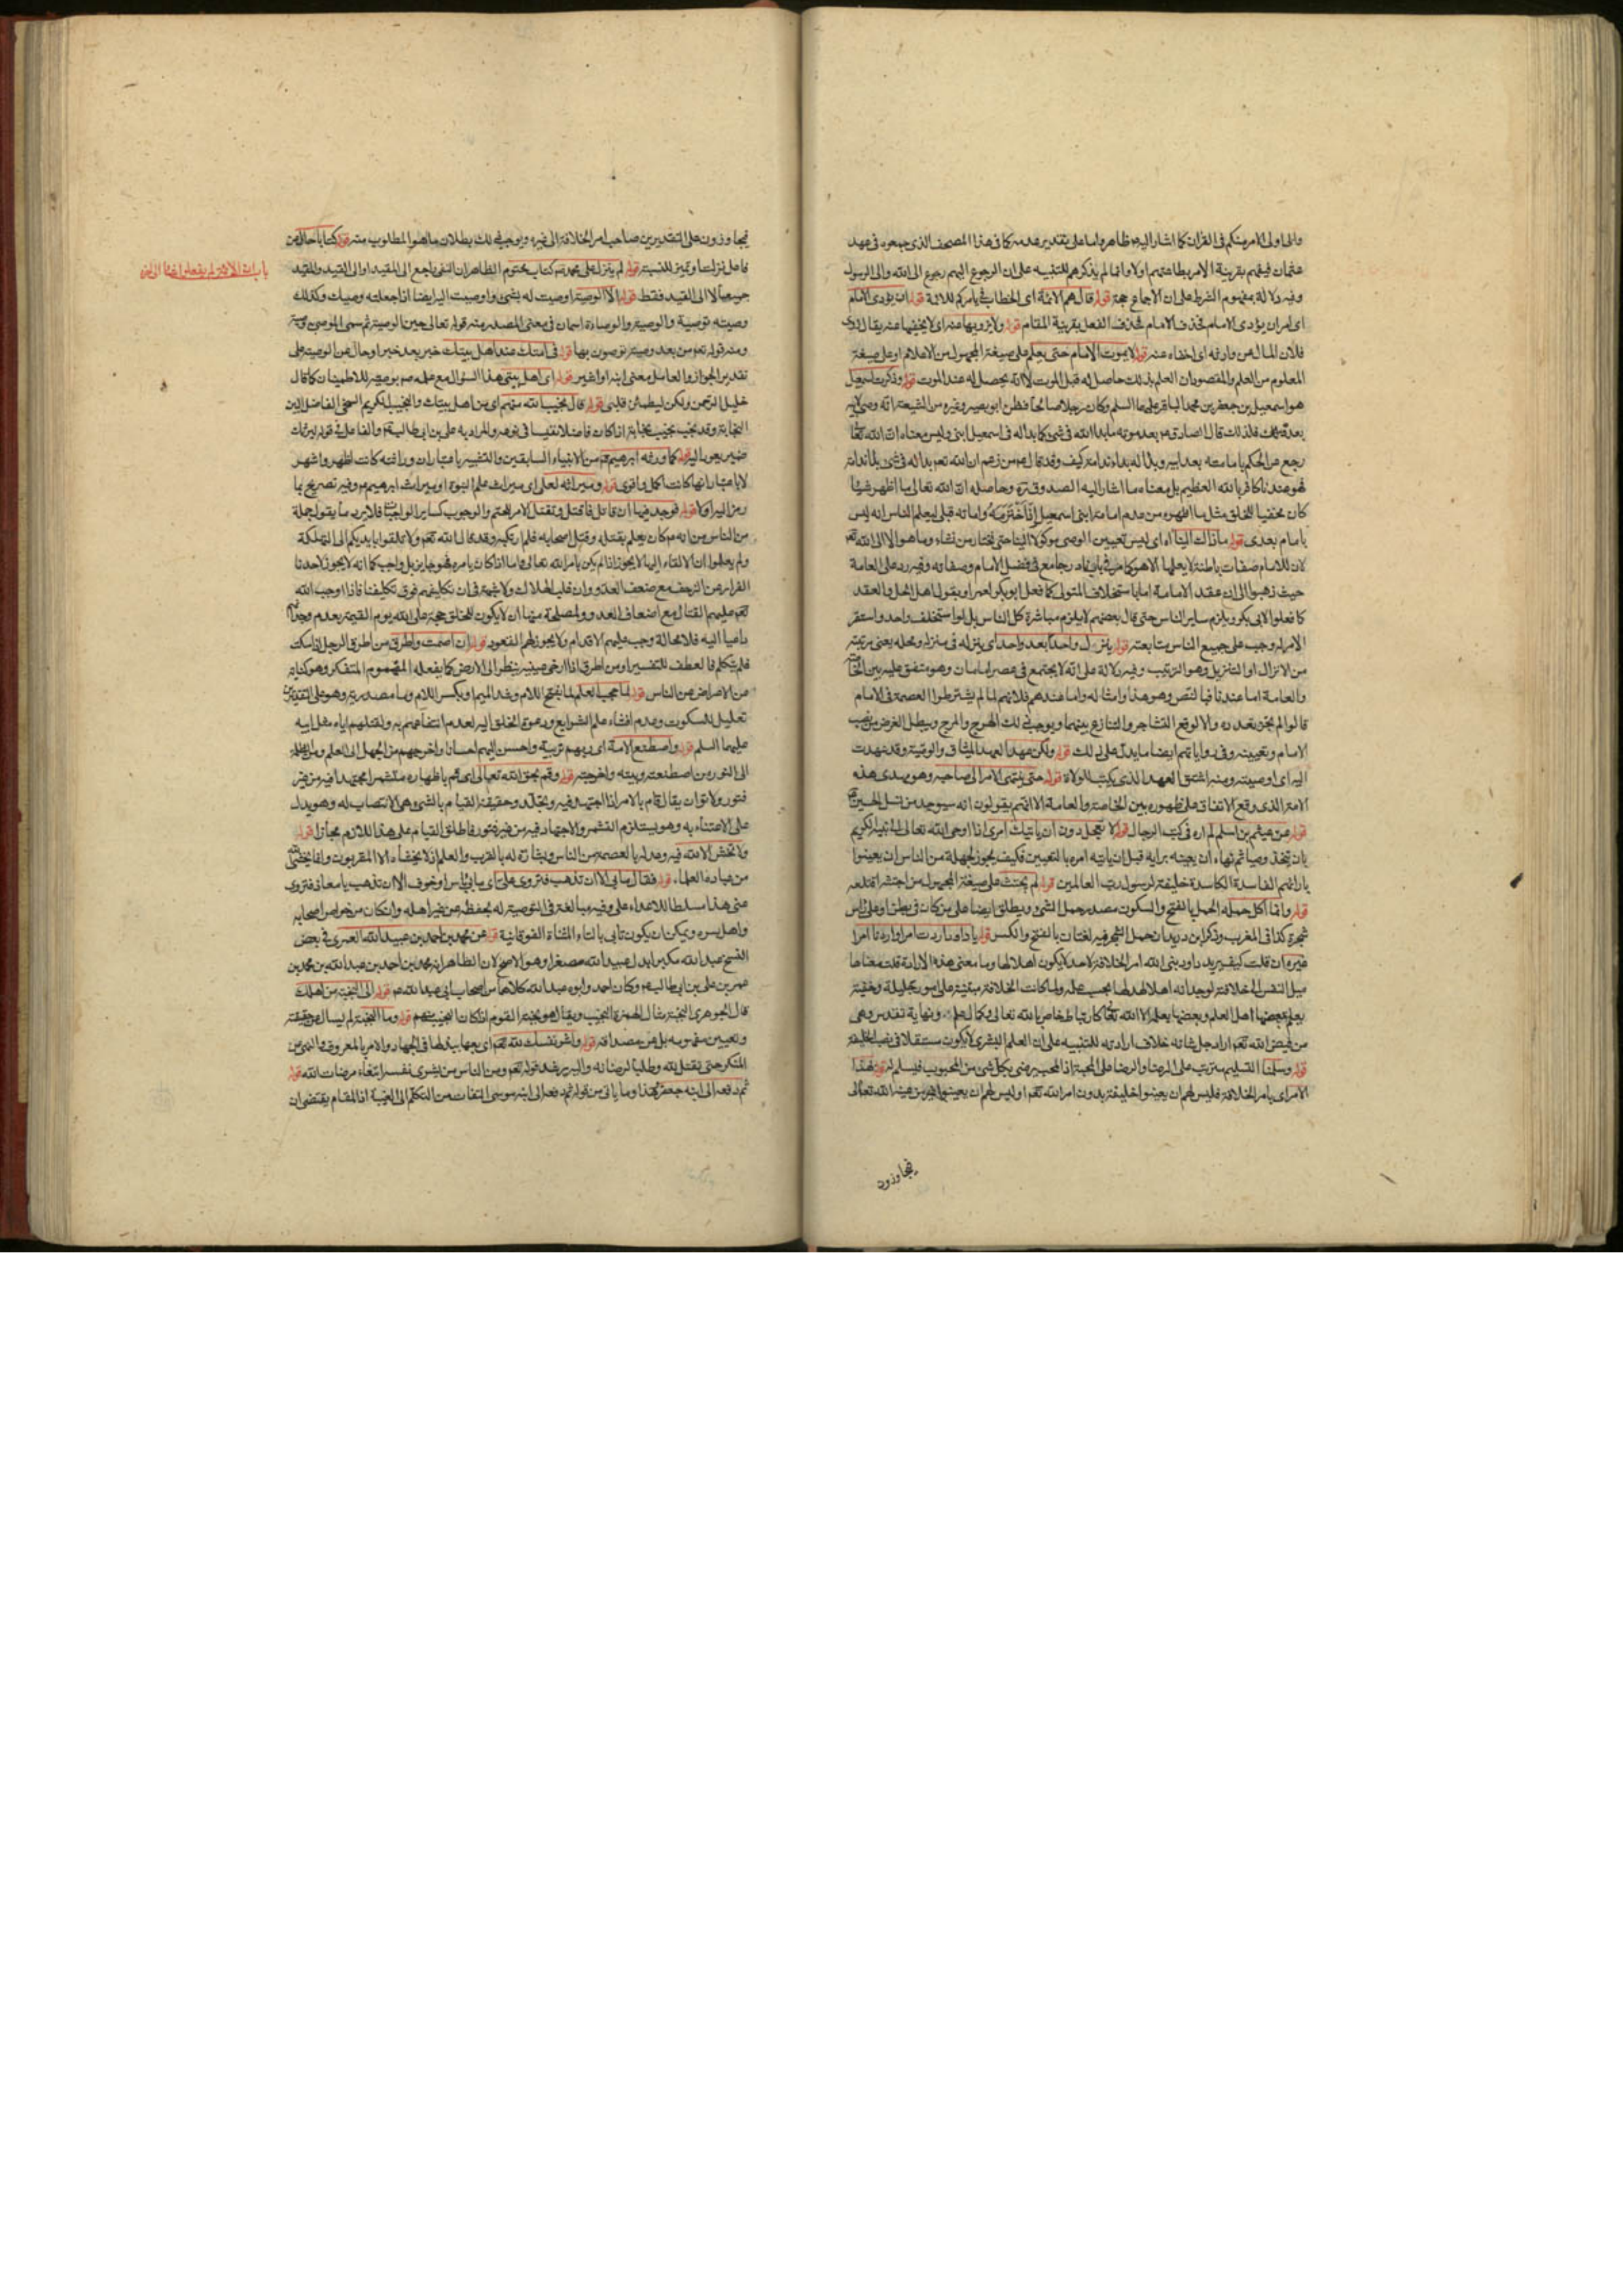 والى اولى الامر منكم فى القران كما اشار اليه ظاهر واما على تقدير عدمه كما فى هذا المصحف الذى جمعوه فى عهد
عثمان فيفهم بقرينة الامر بطاعتهم اولا وانما لم يذكرهم للتنبيه على ان الرجوع اليهم رجوع الى الله والى الرسول
وفيه دلالة بمفهوم الشرط على ان الاجماع حجة قوله قال هم الائمة اى الخطاب فى يامركم للائمة قوله ان يؤدى الامام
اى امران يؤدى الامام فحذف الامام فحذف الفعل بقرينة المقام قوله ولا يزويها عنه اى لا يخفيها عنه يقال زوى
فلان المال عن وارثه اى اخفاه عنه قوله لا يموت الامام حتى يعلم على صيغة المجهول من الاعلام او على صيغة
المعلوم من العلم والمقصود ان العلم بذلك حاصل له قبل الموت لا انه يحصل له عند الموت قوله وذكرت اسمعيل
هو اسمعيل بن جعفر بن محمد الباقر عليهما السلم وكان رجلا صالحا فظن ابو بصير وغيره من الشيعة انه وصى لابيه
بعده فلذلك قال الصادق عم بعد موته ما بدا الله فى شئ كما بدا له فى اسمعيل ابنى وليس معناه ان الله تعالى
رجع عن الحكم بامامته بعد ابيه وبدا له بداء ندامة كيف وقد قال عم من زعم ان الله تعم بدا له فى شئ بداء ندامة
فهو عندنا كافر بالله العظيم بل معناه ما اشار اليه الصدوق ره وحاصله ان الله تعالى ما اظهر شيئا
كان مخفيا للخلق مثل ما اظهره من عدم امامة ابنى اسمعيل اذ اخترمه واماته قبلى ليعلم الناس انه ليس
بامام بعدى قوله ما ذاك الينا اه اى ليس تعيين الوصى موكولا الينا حتى نختار من نشاء وما هو الا الى الله تعم
لان للامام صفات باطنة لا يعلمها الا هو كما مر فى باب نادر جامع فى فضل الامام وصفاته وفيه رد على العامة
حيث ذهبوا الى ان عقد الامامة اما باستخلاف المتولى كما فعل ابو بكر لعمر او بقول اهل الحل والعقد
كما فعلوا لابى بكر ويلزم ساير الناس حتى قال بعضهم لا يلزم مباشرة كل الناس بل لو استخلف واحد واستقر
الامر له وجب على جميع الناس متابعته قوله ينزل واحدا بعد واحد اى ينزله فى منزله ومحله يعنى مرتبته
من الانزال او التنزيل وهو الترتيب وفيه دلالة على انه لا يجتمع فى عصر امامان وهو متفق عليه بين الخاصة
والعامة اما عندنا فبالنص وهو هذا وامثاله واما عندهم فلانهم لما لم يشترطوا العصمة فى الامام
قالوا لم يجز تعدده والا لوقع التشاجر والتنازع بينهما ويوجب ذلك الهرج والمرج ويبطل الغرض من نصب
الامام وتعيينه وفى رواياتهم ايضا ما يدل على ذلك قوله ولكن عهد العهد الميثاق والوصية وقد عهدت
اليه اى اوصيته ومنه اشتق العهد الذى يكتب للولاة قوله حتى ينتهى الامر الى صاحبه وهو مهدى هذه
الامة الذى وقع الاتفاق على ظهوره بين الخاصة والعامة الا انهم يقولون انه سيوجد من نسل الحسين
قوله عن عيثم بن اسلم لم اره فى كتب الرجال قوله لا تعجل دون ان ياتيك امرى اذا اوحى الله تعالى الى نبيه الكريم
بان يتخذ وصيا ثم نهاه ان يعينه برايه قبل ان ياتيه امره بالتعيين فكيف يجوز لجهلة من الناس ان يعينوا
بارائهم الفاسدة الكاسدة خليفة لرسول رب العالمين قوله لم يجتث على صيغة المجهول من اجتث اقتلعه
قوله وانما اكل حمله الحمل بالفتح والسكون مصدر حمل الشئ ويطلق ايضا على ما كان فى بطن او على راس
شجرة كذا فى المغرب وذكر ابن دريد ان حمل الشجر فيه لغتان بالفتح والكسر قوله يا داود اردت امرا واردنا امرا
غيره ان قلت كيف يريد داود نبى الله امر الخلافة لاحد لا يكون اهلا لها وما معنى هذه الارادة قلت معناها
ميل النفس الى خلافته لوجدانه اهلا لها بحسب علمه ولما كانت الخلافة مبتنية على امور جليلة وخفية
يعلم بعضها اهل العلم وبعضها لا يعلمه الا الله تعالى كارتباط خاص بالله تعالى وكمال علم ونهاية تقدس وهى
من فيض الله تعم اراد جل شانه خلاف ارادته للتنبيه على ان العلم البشرى لا يكون مستقلا فى نصب الخليفة
قوله وسلمنا التسليم مترتب على الرضا والرضا على المحبة اذ المحب يرضى بكل شئ من المحبوب فيسلم له قوله هذا
الامر اى بامر الخلافة فليس لهم ان يعينوا خليفة بدون امر الله تعم او ليس لهم ان يعينوا غير من عينه الله تعالى
يتجاوزون
يتجاوزون على التقديرين صاحب امر الخلافة الى غيره ويوجب ذلك بطلان ما هو المطلوب منه قوله كتابا حال من
فاعل نزلت او تميز للنسبة قوله لم ينزل على محمد ص كتاب مختوم الظاهر ان النفى راجع الى المقيد او الى القيد والمقيد
جميعا لا الى القيد فقط قوله الا الوصية اوصيت له بشئ واوصيت اليه ايضا اذا جعلته وصيك وكذلك
وصيته توصية والوصية والوصاة اسمان فى معنى المصدر منه قوله تعالى حين الوصية ثم سمى الموصى به وصية
ومنه قوله تعم من بعد وصية توصون بها قوله فى امتك عند اهل بيتك خبر بعد خبر او حال عن الوصية على
تقدير الجواز والعامل معنى انبه او اشير قوله اى اهل بيتى هذا السؤال مع علمه ص بوصيه للاطمينان كما قال
خليل الرحمن ولكن ليطمئن قلبى قوله قال نجيب الله منهم اى من اهل بيتك والنجيب الكريم السخى الفاضل البين
النجابة وقد نجب ينجب نجابة اذا كان فاضلا نفيسا فى نوعه والمراد به على بن ابى طالب عم والفاعل فى قوله ليرثك
ضمير يعود اليه قوله كما ورثه ابرهيم عم من الانبياء السابقين والتشبيه باعتبار ان وراثته كانت اظهر واشهر
لا باعتبار انها كانت اكمل واقوى قوله وميراثه لعلى اى ميراث علم النبوة او ميراث ابرهيم عم وفيه تصريح بما
رمز اليه اولا قوله فوجد فيها ان قاتل فاقتل وتقتل الامر للحتم والوجوب كساير الواجبات فلا يرد ما يقوله جملة
من الناس من انه عم كان يعلم بقتله وقتل اصحابه فلم ارتكبه وقد قال الله تعم ولا تلقوا بايديكم الى التهلكة
ولم يعلموا ان الالقاء اليها لا يجوز اذا لم يكن بامر الله تعالى واما اذا كان بامره فهو جايز بل واجب كما انه لا يجوز لاحدنا
الفرار من الزحف مع ضعف العدو وان غلب الهلاك ولا شبهة فى ان تكاليفهم فوق تكليفنا فاذا اوجب الله
تعم عليهم القتال مع اضعاف العدو ولمصلحة منها ان لا يكون للخلق حجة على الله يوم القيمة بعدم وجدانهم
داعيا اليه فلا محالة وجب عليهم الاقدام ولا يجوز لهم القعود قوله ان اصمت واطرق من اطرق الرجل اذا سكت
فلم يتكلم فالعطف للتفسير او من اطرق اذا ارخى عينيه ينظر الى الارض كما يفعله المهموم المتفكر وهو كناية
عن الاعراض عن الناس قوله لما حجب العلم لما بفتح اللام وشد الميم او بكسر اللام وما مصدرية وهو على التقديرين
تعليل للسكوت وعدم افشاء علم الشرايع ودعوة الخلق اليه لعدم انتفاعهم به ولقتلهم اياه مثل ابيه
عليهما السلم قوله واصطنع الامة اى ربهم تربية واحسن اليهم احسانا واخرجهم من الجهل الى العلم ومن الظلمة
الى النور من اصطنعته ربيته واخرجته قوله وقم بحق الله تعالى اى قم باظهاره متشمرا مجتهدا فيه من غير
فتور ولا توان يقال قام بالامر اذا اجتهد فيه وتجلد وحقيقة القيام بالشئ هى الانتصاب له وهو يدل
على الاعتناء به وهو يستلزم التشمر والاجتهاد فيه من غير فتور فاطلق القيام على هذا اللازم مجازا قوله
ولا تخش الا الله فيه وعد له بالعصمة من الناس وبشارة له بالقرب والعلم اذ لا يخشاه الا المقربون وانما يخشى الله
من عباده العلماء قوله فقال ما بى الا ان تذهب فتروى على اى ما بى باس او خوف الا ان تذهب يا معاذ فتروى
عنى هذا مسلطا للاعداء على وفيه مبالغة فى التوصية له بحفظه عن غير اهله وان كان من خواص اصحابه
واهل سره ويمكن ان يكون تابى بالتاء المثناة الفوقانية قوله عن محمد بن احمد بن عبيد الله العمرى فى بعض
النسخ عبد الله مكبرا بدل عبيد الله مصغرا وهو الاصح لان الظاهر انه محمد بن احمد بن عبد الله بن محمد بن
عمر بن على بن ابى طالب عم وكان احمد وابوه عبد الله كلاهما من اصحاب ابى عبد الله عم قوله الى النجبة من اهلك
قال الجوهرى النجبة مثال الهمزة النجيب ويقال هو نجبة القوم اذا كان النجيب منهم قوله وما النجبة لم يسال عن حقيقته
وتعيين مفهومه بل عن مصداقه قوله واشر نفسك لله تعم اى بعها ببذلها فى الجهاد والامر بالمعروف والنهى عن
المنكر حتى تقتل لله وطلبا لرضاته واليه يرشد قوله تعم ومن الناس من يشرى نفسه ابتغاء مرضات الله قوله
ثم دفعه الى ابنه جعفر هذا وما ياتى من قوله ثم دفعه الى ابنه موسى التفات من التكلم الى الغيبة اذ المقام يقتضى ان
باب ان الائمة لم يفعلوا شيئا الى اخره